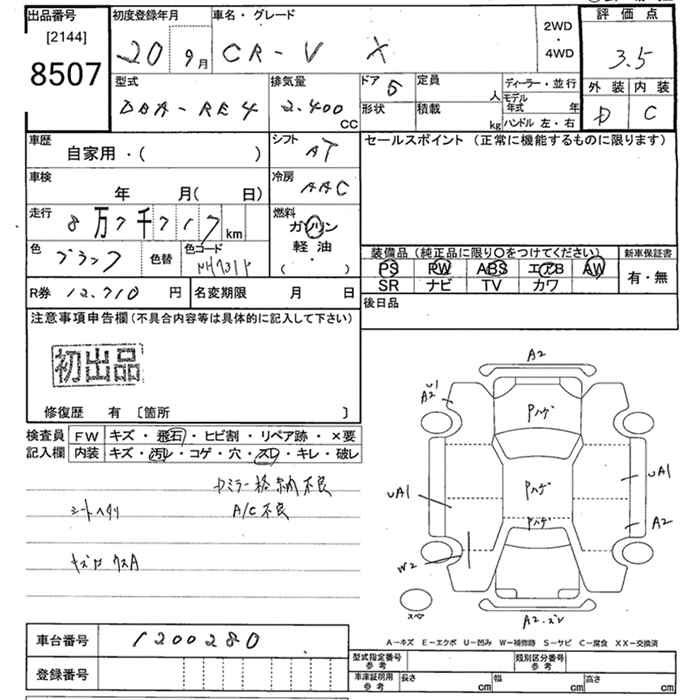 出品番号
[2144]
8507
初度登録年月
20 9月
車名・グレード
CR-V X
2WD
・
4WD
評価点
3.5
外装 内装
D C
型式
DBA-RE4
排気量
2.400
CC
ドア 5
形状
定員 人
積載 kg
ディーラー・並行
モデル年式 年
ハンドル 左・右
車歴
自家用・( )
シフト
AT
車検
年 月( 日)
冷房
AAC
走行
8万7千717km
燃料
ガソリン
軽油
( ・ )
色
ブラック
色替
色コード
R券 12.710 円
名変期限 月 日
セールスポイント (正常に機能するものに限ります)
装備品 (純正品に限り〇をつけてください)
PS PW ABS エアB AW
SR ナビ TV カワ
新車保証書
有・無
後日品
注意事項申告欄 (不具合内容等は具体的に記入して下さい)
初出品
修復歴 有 〔箇所 〕
検査員
記入欄
FW キズ・飛石・ヒビ割・リペア跡・×要
内装 キズ・汚レ・コゲ・穴・スレ・キレ・破レ
ミラー格納不良
シートヘタリ A/C不良
A2
A2
Pハゲ
UA1
Pハゲ
UA1
Pハゲ
A2
W2
スペア
A2.
A-キズ E-エクボ U-凹み W-補修跡 S-サビ C-腐食 XX-交換済
車台番号 1200280
登録番号
型式指定番号
参考
類別区分番号
参考
車庫証明用
参考
長さ cm
幅 cm
高さ cm